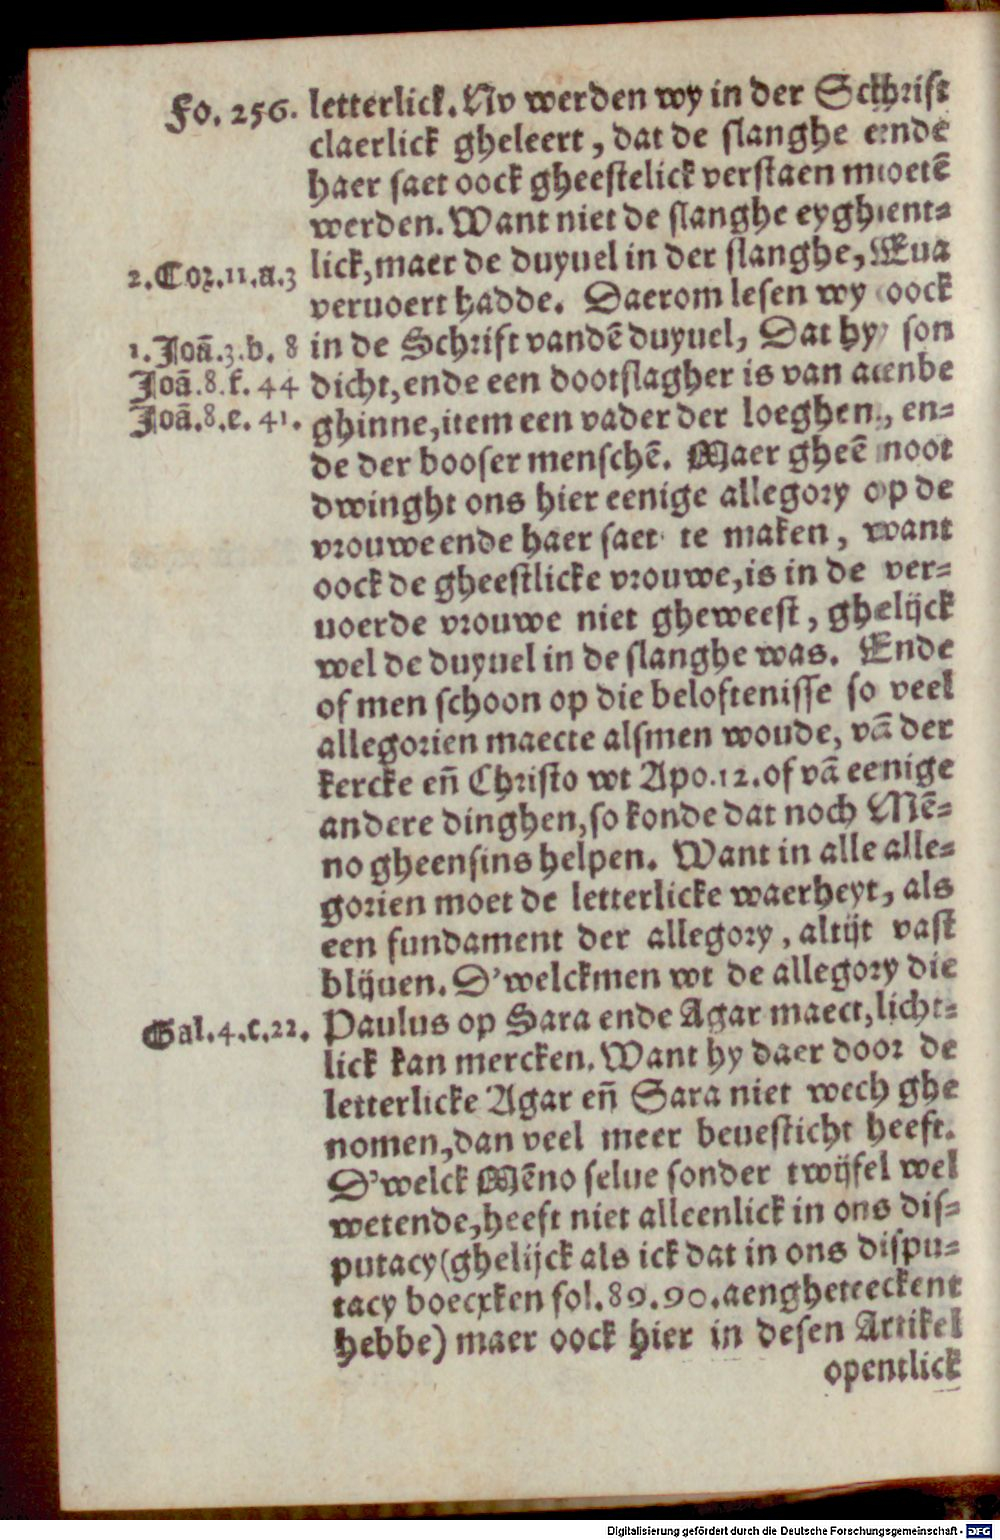 Fo. 256. letterlick. Nv werden wy in der Schrift
claerlick gheleert, dat de slanghe ende
haer saet oock gheestelick verstaen moetē
werden. Want niet de slanghe eyghent-
2. Cor. 11. a. 3 lick, maer de duyuel in der slanghe, Eua
veruoert hadde. Daerom lesen wy oock
1. Joā. 3. b. 8 in de Schrift vandē duyuel, Dat hy son
Joā. 8. f. 44 dicht, ende een dootslagher is van aenbe
Joā. 8. e. 41. ghinne, item een vader der loeghen, en-
de der booser menschē. Maer gheē noot
dwinght ons hier eenige allegory op de
vrouwe ende haer saet te maken, want
oock de gheestlicke vrouwe, is in de ver-
uoerde vrouwe niet gheweest, ghelijck
wel de duyuel in de slanghe was. Ende
of men schoon op die beloftenisse so veel
allegorien maecte alsmen woude, vā der
kercke en̄ Christo wt Apo. 12. of vā eenige
andere dinghen, so konde dat noch Mē-
no gheensins helpen. Want in alle alle-
gorien moet de letterlicke waerheyt, als
een fundament der allegory, altijt vast
blijuen. D'welckmen wt de allegory die
Gal. 4. c. 22. Paulus op Sara ende Agar maect, licht-
lick kan mercken. Want hy daer door de
letterlicke Agar en̄ Sara niet wech ghe
nomen, dan veel meer beuesticht heeft.
D'welck Mēno selue sonder twijfel wel
wetende, heeft niet alleenlick in ons dis-
putacy (ghelijck als ick dat in ons dispu-
tacy boecxken fol. 89. 90. aengheteeckent
hebbe) maer oock hier in desen Artikel
opentlick
Digitalisierung gefördert durch die Deutsche Forschungsgemeinschaft - DFG